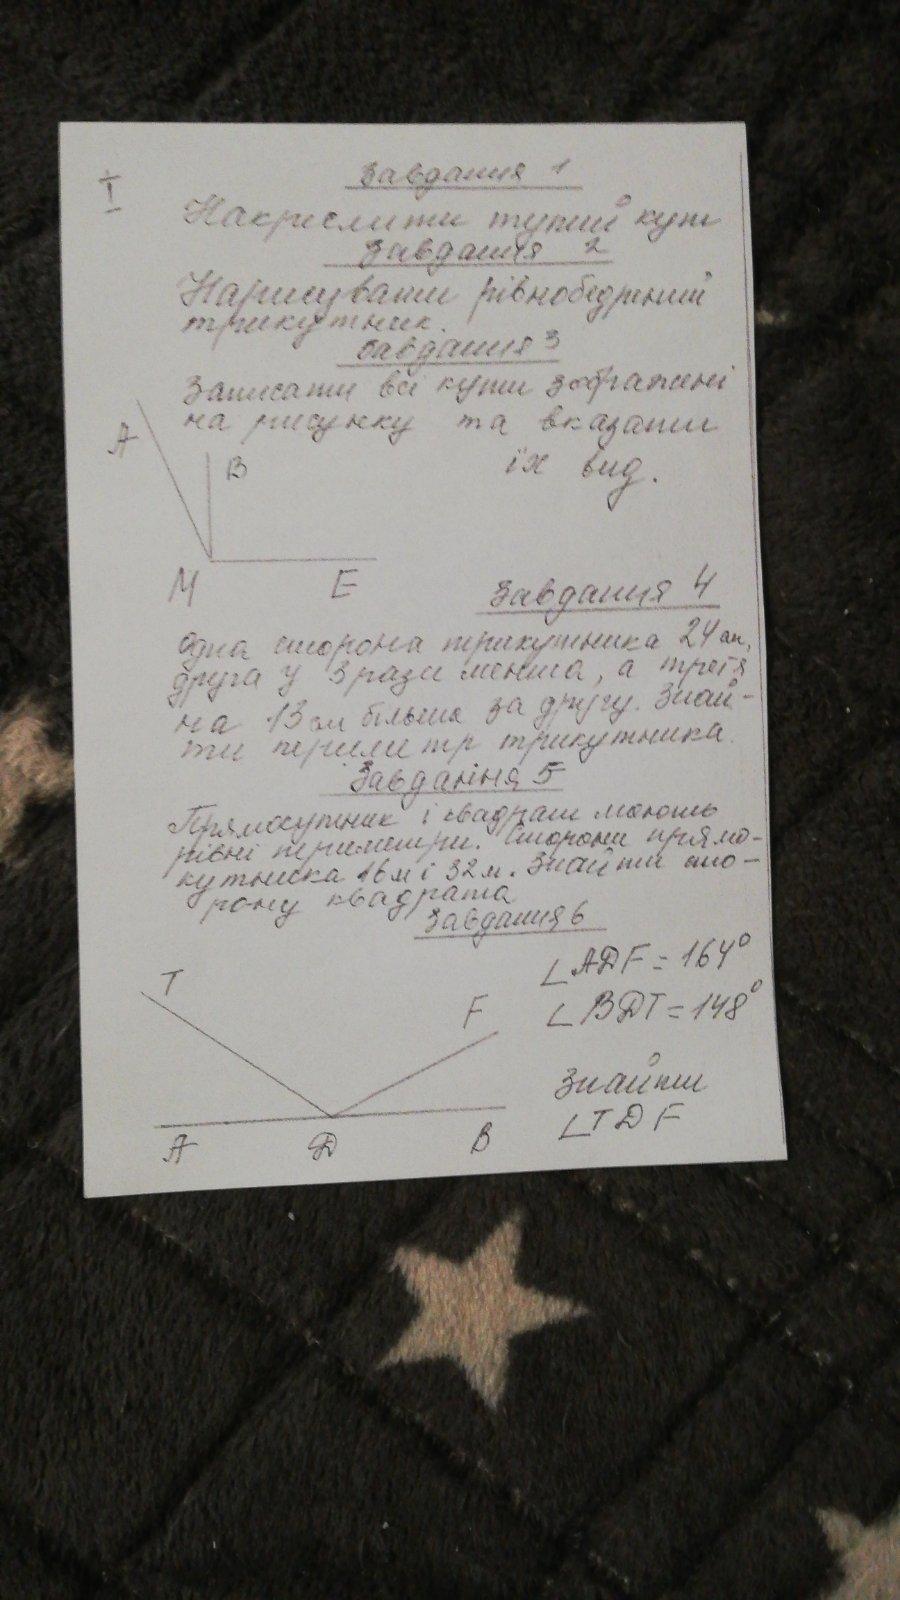 I
Завдання 1
Накреслити тупий кут
Завдання 2
Нарисувати рівнобедрений
трикутник.
Завдання 3
Записати всі кути зображені
на рисунку та вказати
їх вид.
A
B
M
E
Завдання 4
Одна сторона трикутника 24 см,
друга у 3 рази менша, а третя
на 13 см більша за другу. Знай-
ти периметр трикутника.
Завдання 5
Прямокутник і квадрат мають
рівні периметри. Сторони прямо-
кутника 16м і 32м. Знайти сто-
рону квадрата
Завдання 6
∠ADF = 164°
∠BDT = 148°
Знайти
∠TDF
T
F
A
D
B